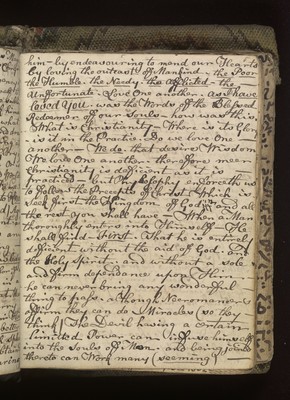 him - by endeavouring to mend our Hearts
by loving the outcasts off Mankind - the Poor
the Humble - the Needy - the Afflicted - the
Unfortunate - Love One another - as I have
loved You - was the Words off the Blessed
Redeemer of our Souls - how was this,
What is Christianity - Where is its Glory
is it in the Practice - Do we love One
another - We do that desires Wisdom
We love One another - therefore
Christianity is deficient as it is
enforceth us
to follow the Precepts of Christ - Which is
seek first the Kingdom of God and all
the rest you shall have - When a Man
thoroughly enters into Himself He
shall find - first - What he is entirely
deficient without the aid of God - and
the Holy Spirit - and without a sole
and firm dependance upon Him
he can never bring any wonderful
thing to pass - although Necromancers
affirm they can do Miracles (so they
think) The Devil having a certain
limited Power can infuse himself
into the Souls off Men - and being joined
thereto can Work many (seeming)